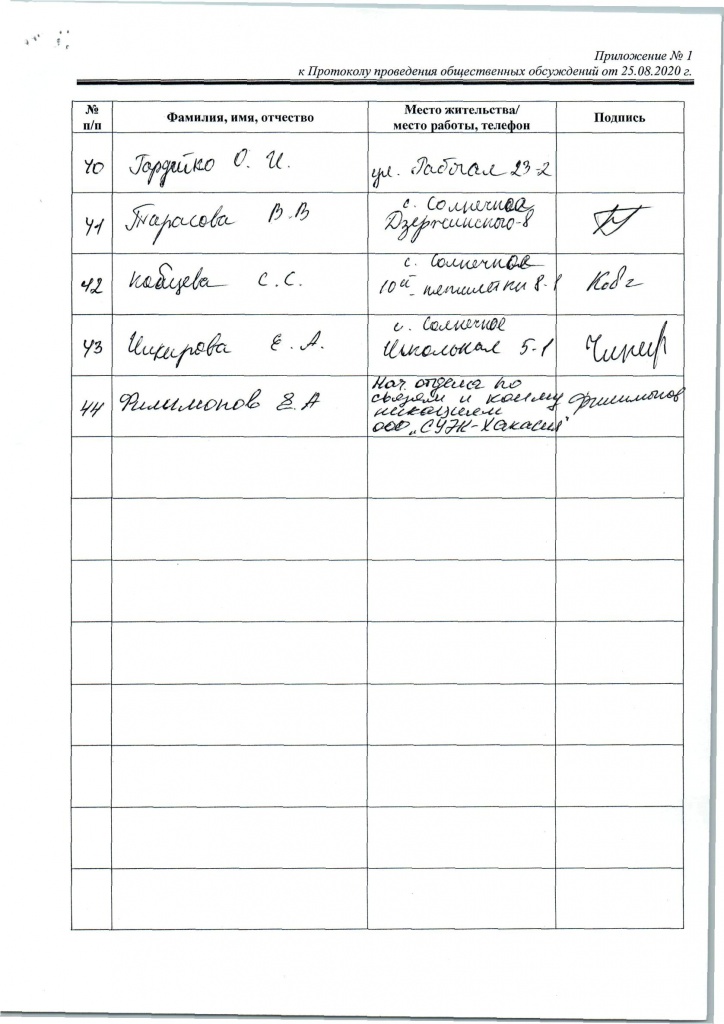 Приложение № 1
к Протоколу проведения общественных обсуждений от 25.08.2020 г.
№ п/п
Фамилия, имя, отчество
Место жительства/
место работы, телефон
Подпись
40 О. И. ул. Рабочая 23-2
41 Тарасова В.В с. Солнечное
Дзержинского-8
42 Кобцева С.С. с. Солнечное
10ой пятилетки 8-1 Кобг
43 Е.А. с. Солнечное
Школьная 5-1
44 Филимонов Е.А Нач. отдела по
связям и комму
никациям
ООО "СУЭК-Хакасия" Филимонов